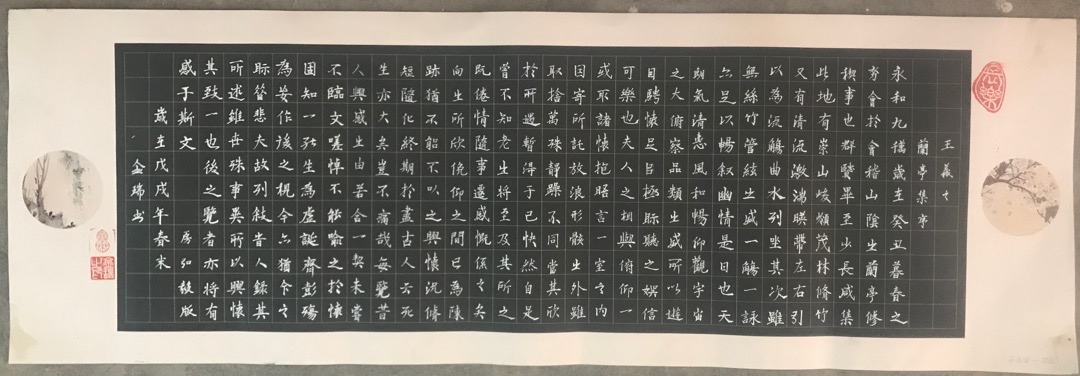 王羲之
蘭亭集序
永和九年歲在癸丑暮春之
初會於會稽山陰之蘭亭修
禊事也群賢畢至少長咸集
此地有崇山峻嶺茂林脩竹
又有清流激湍暎帶左右引
以為流觴曲水列坐其次雖
無絲竹管絃之盛一觴一詠
亦足以暢敘幽情是日也天
朗氣清惠風和暢仰觀宇宙
之大俯察品類之盛所以遊
目騁懷足以極眎聽之娛信
可樂也夫人之相與俯仰一
或取諸懷抱晤言一室之內
因寄所託放浪形骸之外雖
取捨萬殊靜躁不同當其欣
於所遇暫得于己快然自足
曾不知老之將至及其所之
既倦情隨事遷感慨係之矣
向之所欣俛仰之間已為陳
跡猶不能不以之興懷況脩
短隨化終期於盡古人云死
生亦大矣豈不痛哉每覽昔
人興感之由若合一契未嘗
不臨文嗟悼不能喻之於懷
固知一死生為虛誕齊彭殤
為妄作後之視今亦猶今之
眎昔悲夫故列敘昔人錄其
所述雖世殊事異所以興懷
其致一也後之覽者亦將有
感于斯文 房弘毅版
歲在戊戌年春末
金瑞書